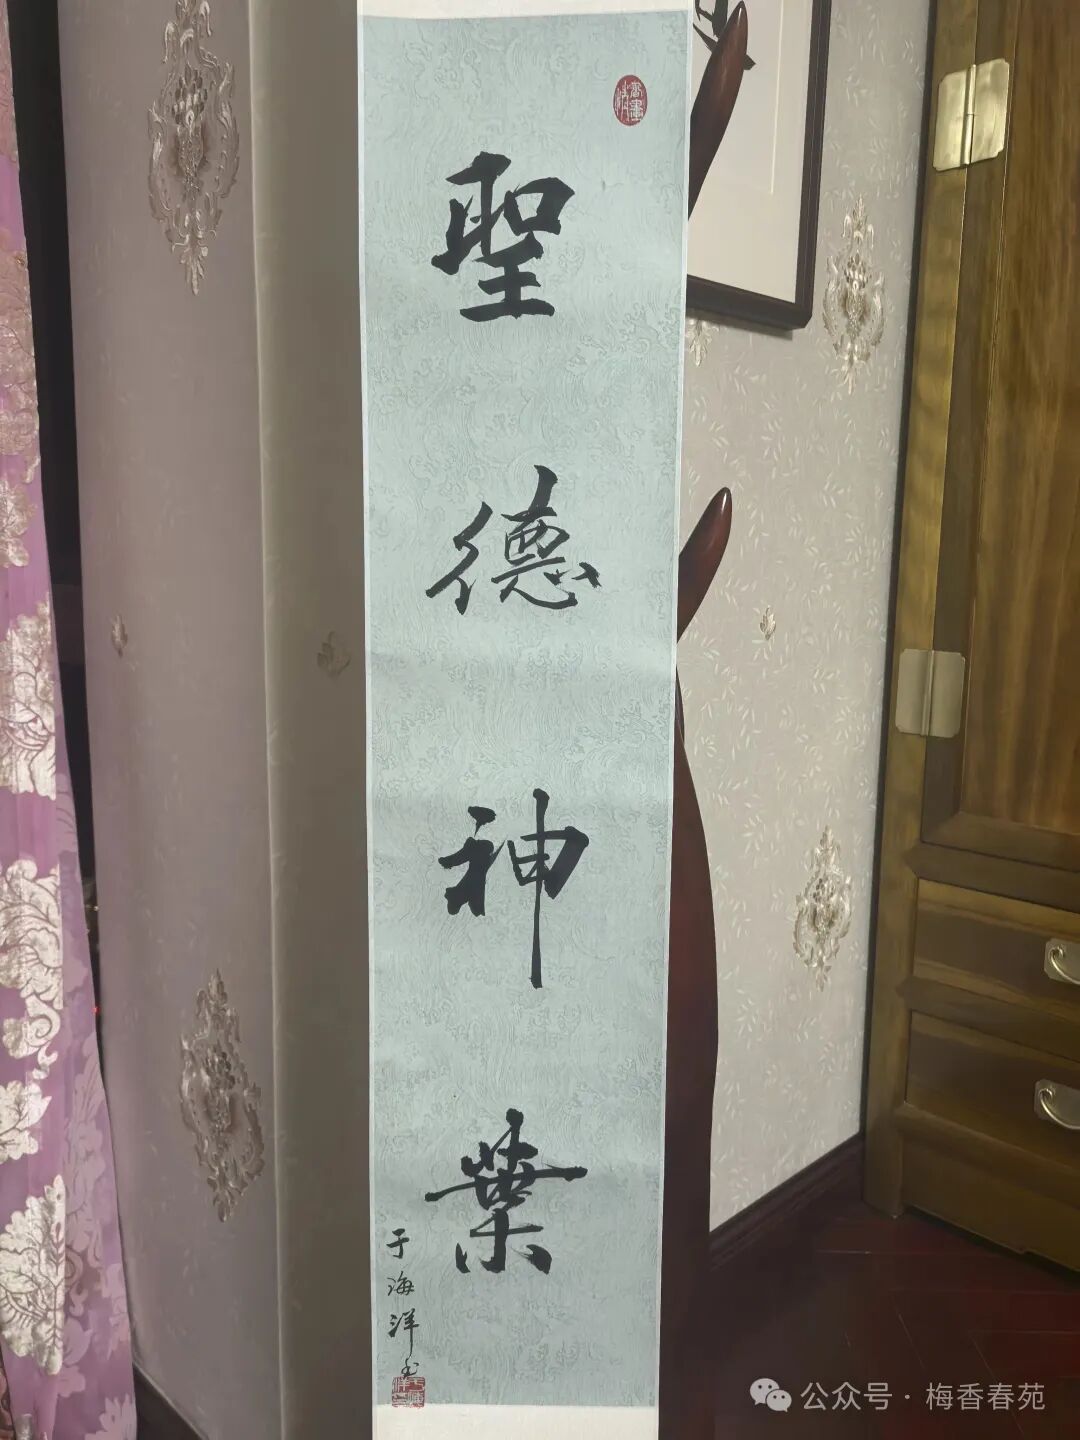 聖德神葉
于海洋书
公众号·梅香春苑